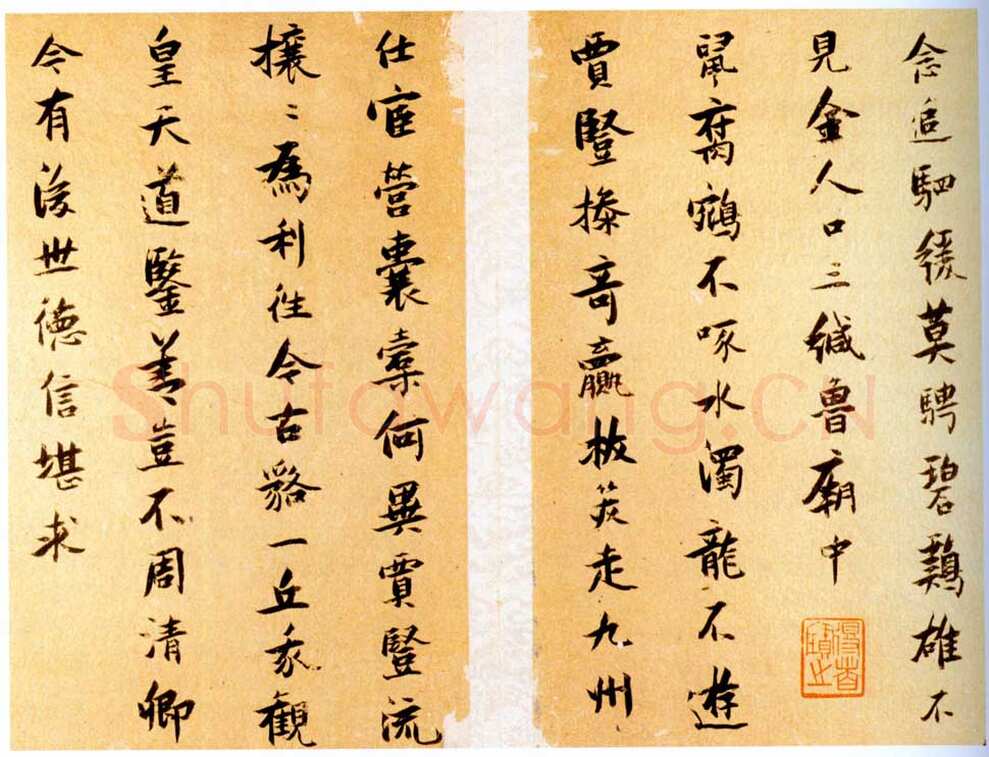 念追駟緩莫騁碧鷄雄不
見金人口三緘魯廟中
鼠腐鵷不啄水濁龍不遊
賈豎操奇贏枚筴走九州
仕宦營囊橐何異賈豎流
攘〻為利徃今古貉一丘我觀
皇天道鑒善豈不周清卿
今有後世德信堪求
Shufawang.CN